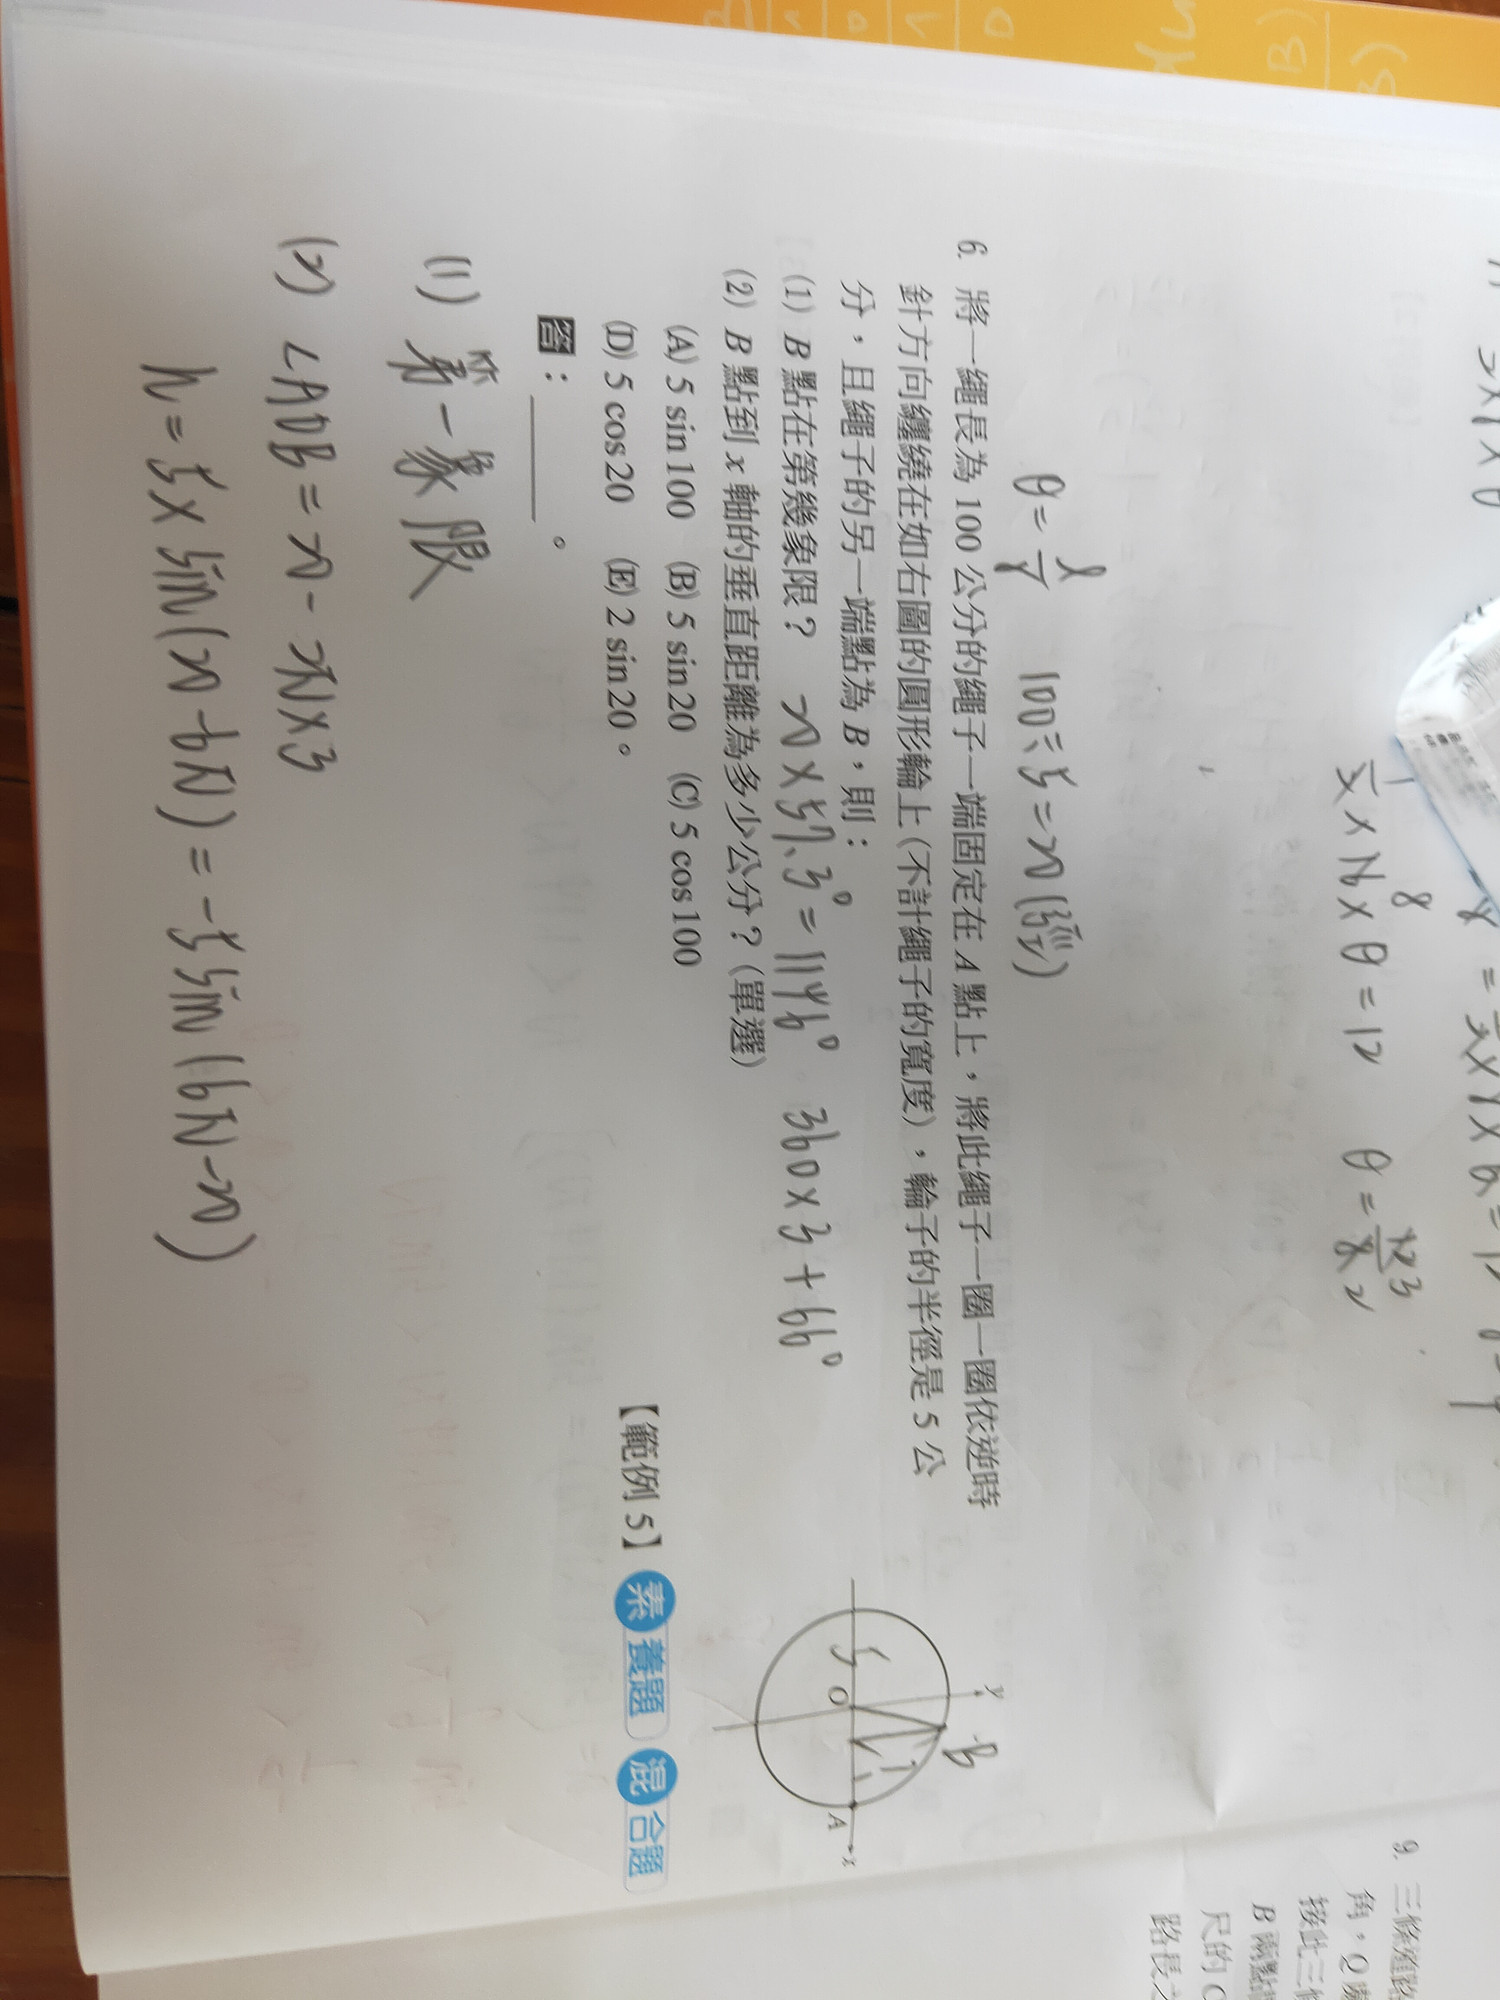 θ = ℓ/r 100÷5=20(弳)
6. 將一繩長為 100 公分的繩子一端固定在 A 點上，將此繩子一圈一圈依逆時
針方向纏繞在如右圖的圓形輪上（不計繩子的寬度），輪子的半徑是 5 公
分，且繩子的另一端點為 B，則：
(1) B 點在第幾象限？ 20×57.3°=1146° 360×3+66°
(2) B 點到 x 軸的垂直距離為多少公分？（單選）
(A) 5 sin 100 (B) 5 sin 20 (C) 5 cos 100
(D) 5 cos 20 (E) 2 sin 20。
答：
。
【範例 5】 素養題 混合題
y
B
5
O
A
x
(1) 第一象限
(2) ∠AOB = 20 - 2π×3
h = 5× sin(20-6π) = -5 sin(6π-20)
1/2 × 16 × θ = 12
8
9. 三條道路
角，Q
接此三條
B 兩點
尺的 C
路長